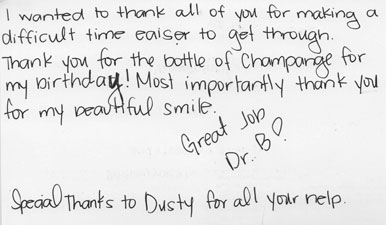 I wanted to thank all of you for making a
difficult time eaiser to get through.
Thank you for the bottle of Champange for
my birthday! Most importantly thank you
for my beautiful smile.
Great Job
Dr. B!
Special Thanks to Dusty for all your help.